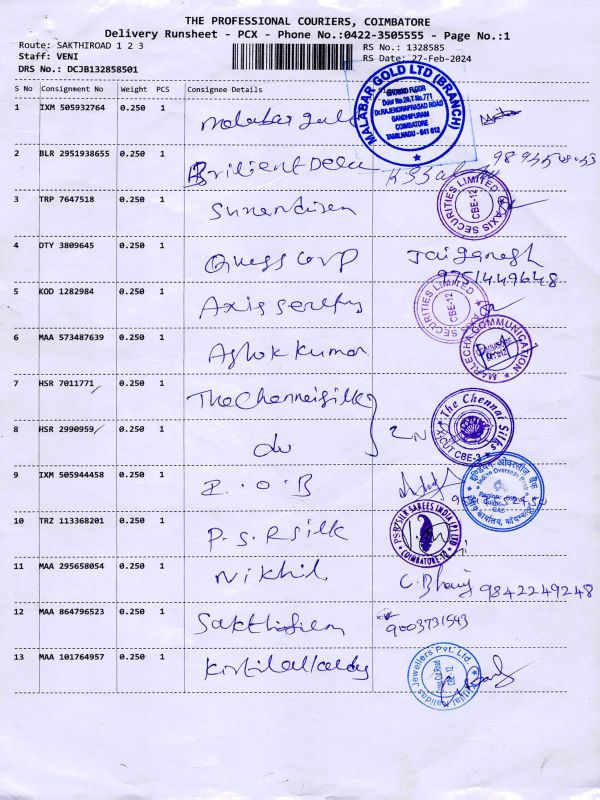 THE PROFESSIONAL COURIERS, COIMBATORE
Delivery Runsheet - PCX - Phone No.:0422-3505555 - Page No.:1
Route: SAKTHIROAD 1 2 3 RS No.: 1328585
Staff: VENI RS Date: 27-Feb-2024
DRS No.: DCJB132858501
S No Consignment No Weight PCS Consignee Details
1 IXM 505932764 0.250 1 Malabar gold
MALABAR GOLD LTD (BRANCH)
GROUND FLOOR
Door No.28,T No.771
Dr.RAJENDRAPRASAD ROAD
GANDHIPURAM
COIMBATORE
TAMILNADU - 641 012
2 BLR 2951938655 0.250 1 Brilient
3 TRP 7647518 0.250 1
AXIS SECURITIES LIMITED
CBE-12
4 DTY 3809645 0.250 1 Quess Corp Jai ganesh
9751449648
5 KOD 1282984 0.250 1 Axis
AXIS SECURITIES LIMITED
CBE-12
6 MAA 573487639 0.250 1 Ashok kumar
MARLECHA COMMUNICATION
7 HSR 7011771 0.250 1 The Chennai silk
8 HSR 2990959 0.250 1 do 2 N
The Chennai Silks
CBE-2
9 IXM 505944458 0.250 1 I. O. B
इण्डियन ओवरसीज़ बैंक
Indian Overseas Bank
10 TRZ 113368201 0.250 1 P. S. R silk
PSR SILK SAREES INDIA (P) LTD
COIMBATORE-12
11 MAA 295658054 0.250 1 Nikhil 9842249248
12 MAA 864796523 0.250 1 9003731543
13 MAA 101764957 0.250 1 Kirtilal kalidas
Kirtilal Kalidas Jewellers Pvt. Ltd.
CBE-12